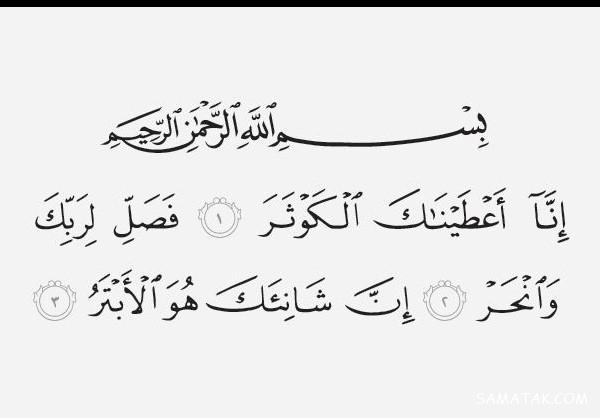 بِسْمِ اللَّهِ الرَّحْمَٰنِ الرَّحِيمِ
إِنَّآ أَعْطَيْنَٰكَ ٱلْكَوْثَرَ ١ فَصَلِّ لِرَبِّكَ
وَٱنْحَرْ ٢ إِنَّ شَانِئَكَ هُوَ ٱلْأَبْتَرُ ٣
SAMATAK.COM